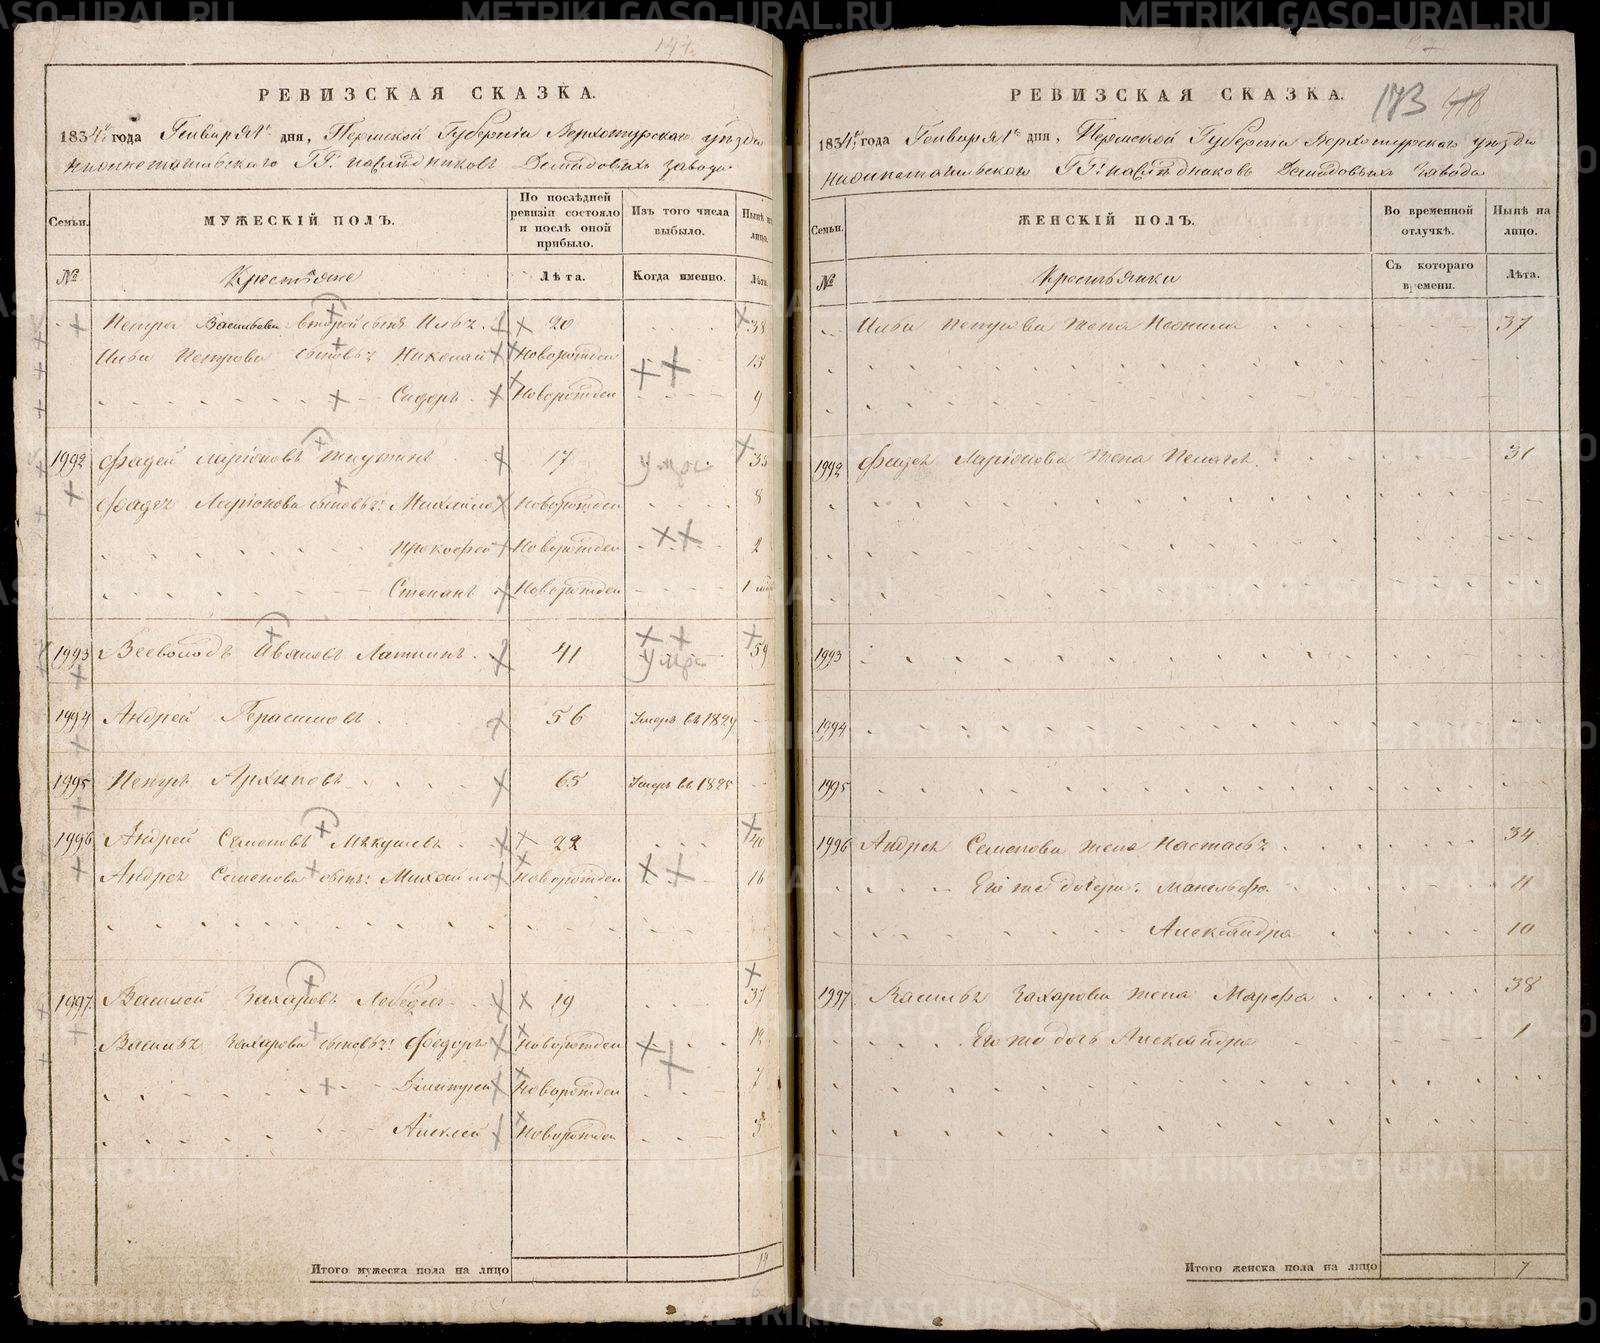 РЕВИЗСКАЯ СКАЗКА.
1834 года Генваря 1 дня, Пермской Губернiи Верхотурскаго уѣзда
Нижнетагильскаго ГГ: наслѣдниковъ Демидовыхъ завода
Семьи.
МУЖЕСКІЙ ПОЛЪ.
По послѣдней ревизіи состояло и послѣ оной прибыло.
Изъ того числа выбыло.
Нынѣ на лицо.
№
Крестьяне
Лѣта.
Когда именно.
Лѣта.
Петра Васильева второй сынъ Илья. 20 38
Ильи Петрова сыновья Николай Новорожден 15
Сидоръ Новорожден 9
1992 Фадей Ларіоновъ 17 умре 35
Фадея Ларіонова сыновья: Михайло Новорожден 8
Прокофей Новорожден 2
Степанъ Новорожден 1
1993 Всеволодъ Ивановъ Латнинъ. 41 умре 59
1994 Андрей Герасимовъ 56 Умеръ въ 1829
1995 Петръ Архиповъ 65 Умеръ въ 1825
1996 Андрей Семеновъ Мѣкушевъ 22 40
Андрея Семенова сынъ: Михайло Новорожден 16
1997 Василей Захаровъ Лебедевъ 19 37
Василья Захарова сыновья: Федоръ Новорожден 12
Дмитрей Новорожден 7
Алексей Новорожден 5
Итого мужеска пола на лицо 14
173
РЕВИЗСКАЯ СКАЗКА.
1834 года Генваря 1 дня, Пермской Губернiи Верхотурскаго уѣзда
Нижнетагильскаго ГГ: наслѣдниковъ Демидовыхъ завода
Семьи.
ЖЕНСКІЙ ПОЛЪ.
Во временной отлучкѣ.
Нынѣ на лицо.
№
Крестьянки
Съ котораго времени.
Лѣта.
Ильи Петрова жена Неонила 37
1992 Фадея Ларіонова жена Пелагея. 31
1993
1994
1995
1996 Андрея Семенова жена Настасья 34
Его же дочери: Манефа 11
Александра 10
1997 Василья Захарова жена Марфа 38
Его же дочь Александра 1
Итого женска пола на лицо 7
METRIKI.GASO-URAL.RU